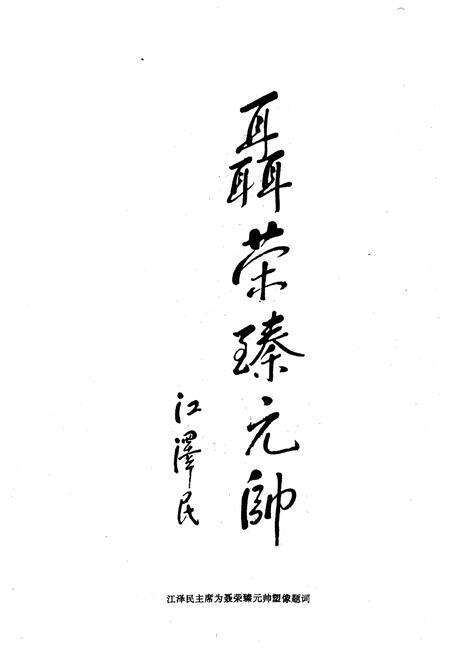 聶荣臻元帥
江澤民
江泽民主席为聂荣臻元帅塑像题词